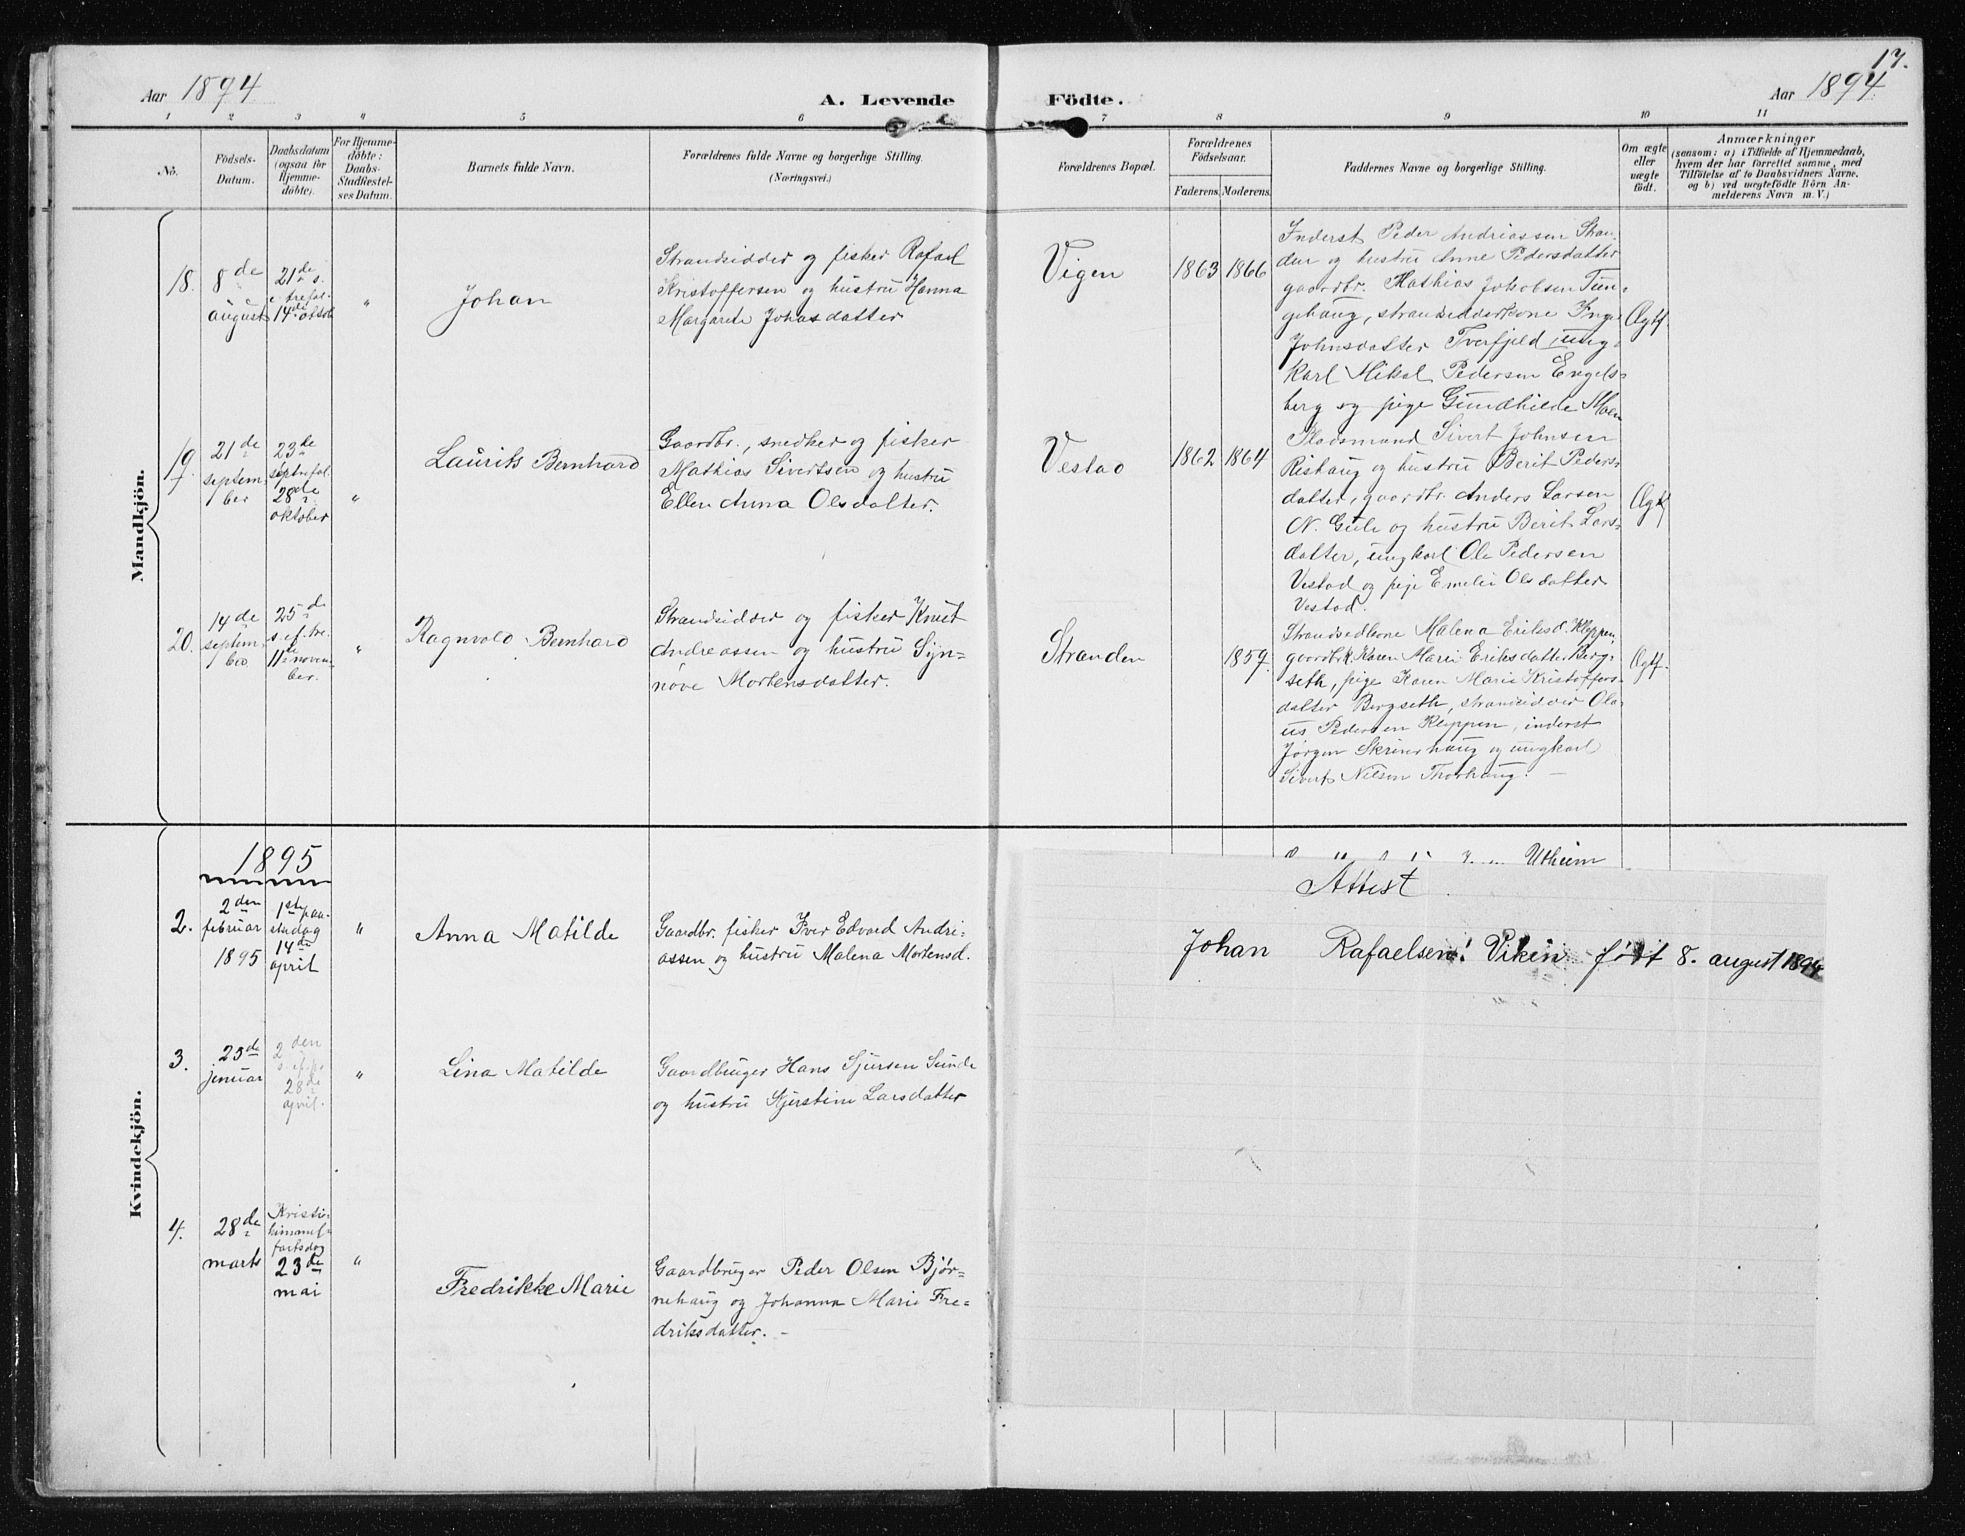 17.
Aar 1894
A. Levende Födte.
Aar 1894
1 2 3 4 5 6 7 8 9 10 11
No.
Födsels-
Datum.
Daabsdatum
(ogsaa for
Hjemme-
döbte).
For Hjemme-
döbte:
Daabs-
Stadfæstel-
ses Datum.
Barnets fulde Navn.
Forældrenes fulde Navne og borgerlige Stilling.
(Næringsvei.)
Forældrenes Bopæl.
Forældrenes
Födselsaar.
Faderens. Moderens.
Faddernes Navne og borgerlige Stilling.
Om ægte
eller
uægte
födt.
Anmærkninger
(saasom: a) i Tilfælde af Hjemmedaab,
hvem der har forrettet samme, med
Tilföielse af to Daabsvidners Navne,
og b) ved uægtefödte Börn An-
melderens Navn m. V.)
Mandkjön.
18.
8de
august
21de s.
e. trefol-
14de oktob
"
Johan
Strandsidder og fisker Rafael
Kristoffersen og hustru Hanna
Margarete Johasdatter
Vigen
1863 1866
Inderst Peder Andreassen Stran-
den og hustru Anne Pedersdatter
gaardbr. Mathias Jakobsen Tun-
gehaug, strandsidderkone Inge
Johnsdatter Tverfjeld, ung-
karl Mikal Pedersen Engels-
berg og pige Gundhilde Moen
Ægte.
19.
21de
septem-
ber
23de
s. e. trefol.
28de
oktober
"
Laurits Bernhard
Gaardbr., snedker og fisker
Mathias Sivertsen og hustru
Ellen Anna Olsdatter.
Vestad
1862 1864
Pladsmand Sivert Johnsen
Rishaug og hustru Berit Peders-
datter, gaardbr. Anders Larsen
N. Gule og hustru Berit Lars-
datter, ungkarl Ole Pedersen
Vestad og pige Emelie Olsdatter
Vestad.
Ægte
20.
14de
septem-
ber
25de
s. ef. tre.
11te novem-
ber.
"
Ragnvald Bernhard
Strandsidder og fisker Knut
Andreassen og hustru Syn-
nøve Mortensdatter.
Stranden
1859.
Strandsedkone Malena Eriksd. Kleppen,
gaardbrk. Karen Marie Eriksdatter Berg-
seth, pige Karen Marie Kristoffers-
datter Bergseth, strandsidder Ola-
us Pedersen Kleppen, inderst
Jørgen Skrinshaug og ungkarl
Sivert Nilsen Thorhaug. –
Ægte.
Kvindekjön.
1895
2.
2den
februar
1895
1ste paa-
skedag
14de
april
"
Anna Matilde
Gaardbr. fisker Iver Edvard Andri-
assen og hustru Malena Mortensd.
Utheim
Attest
Johan Rafaelsen Viken født 8. august 1894
3.
23de
januar
2den
s. ef. p.
28de
april.
"
Lina Matilde
Gaardbruger Hans Sjursen Sunde
og hustru Kjerstine Larsdatter
4.
28de
marts
Kristi-
himmel-
fartsdag
23de
mai
"
Fredrikke Marie
Gaardbruger Peder Olsen Bjør-
nehaug og Johanna Marie Fre-
driksdatter. –